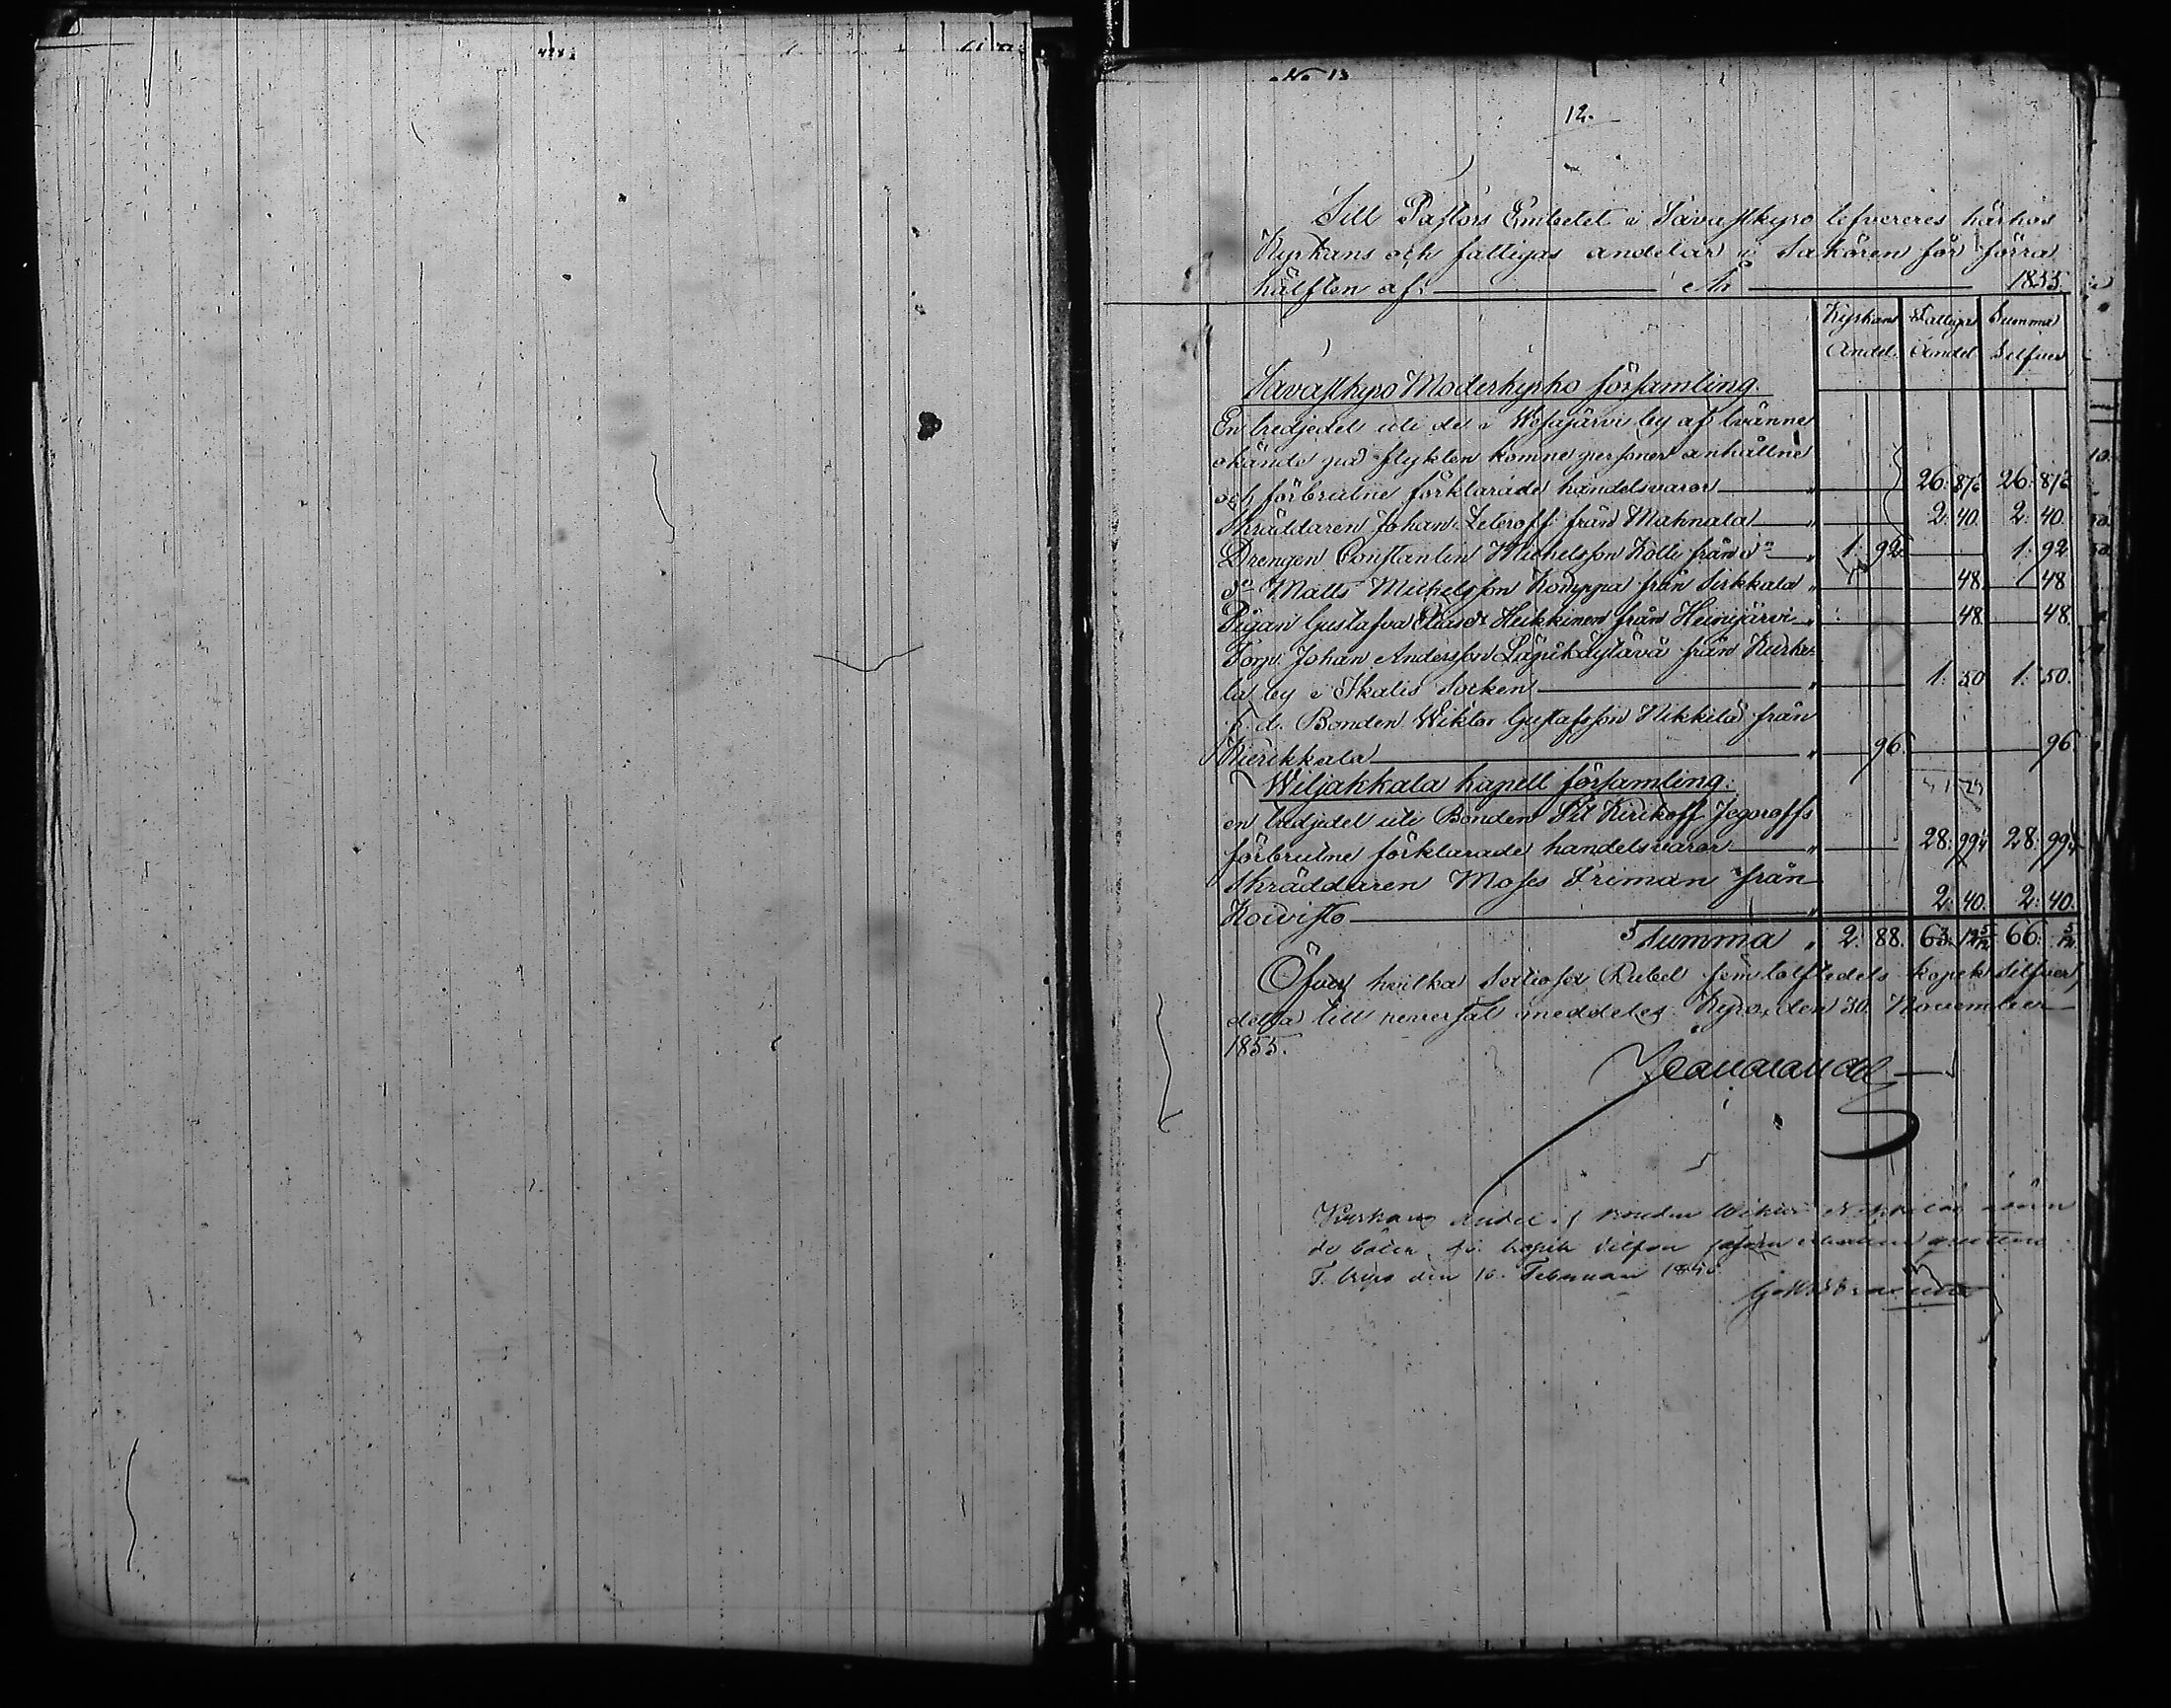 No 13
12.
Till Pastors Embetet i Tavastkyro lefvereres härhos
Kyrkans och fattigas andelar i Sakören för förra
hälften af År 1855.
Kyrkans Fattigas Summa
Andel. Andel Silfver
Tavastkyro Moderkyrko församling.
En tredjedel uti de i Wesajärvi by af tvänne
okände på flykten komne personer anhållne
och förbrutne förklarade handelsvaror " 26: 87 1/6 26: 87 1/6
Skräddaren Johan Zeteroff från Mahnala " 2: 40. 2: 40.
Drengen Constantin Michelsson Kolli från do " 1: 92. 1: 92
do Matts Michelsson Komppa från Sirkkala " 48. 48
Pigan Gustafva Heikkinen från Heinijärvi " 48. 48
Torp. Johan Andersson från Kurke-
la by i Ikalis Socken " 1: 50 1: 50.
f. d. Bonden Wiktor Gustafsson Nikkilä från
Kierikkala " 96. 96.
Wiljakkala kapell församling.
en tredjedel uti Bonden Kirikoff Jegoroffs
förbrutne förklarade handelsvaror " 28: 99 1/4 28: 99 1/4
Skräddaren Moses Friman från
Koivisto " 2: 40. 2: 40.
Summa " 2: 88. 63: 12 5/12 66: 5/12.
Öfver hvilka Sextiosex Rubel fem tolftedels kopek Silfver,
detta till reversal meddeles. Kyro, den 30. November
1855.
Kyrkans andel i Bonden Wiktor Nikkiläs
kopek Silfver
T. kyro den 16. Februari